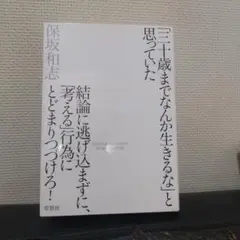 「三十歳までなんか生きるな」と
思っていた
保坂和志
結論に逃げ込まずに、
「考える」行為に
とどまりつづけろ!
草思社